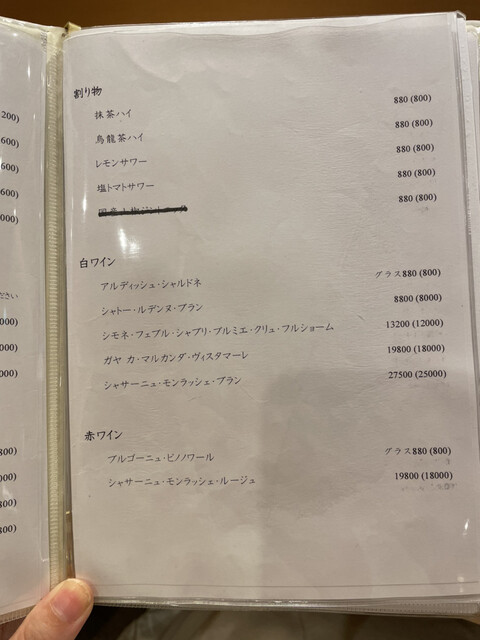 200)
600)
600)
600)
000)
ださい
000)
000)
000)
800)
000)
800)
800)
割り物
抹茶ハイ 880 (800)
烏龍茶ハイ 880 (800)
レモンサワー 880 (800)
塩トマトサワー 880 (800)
880 (800)
白ワイン
アルディッシュ・シャルドネ グラス880 (800)
シャトー・ルデンヌ・ブラン 8800 (8000)
シモネ・フェブル・シャブリ・プルミエ・クリュ・フルショーム 13200 (12000)
ガヤ カ・マルカンダ・ヴィスタマーレ 19800 (18000)
シャサーニュ・モンラッシェ・ブラン 27500 (25000)
赤ワイン
ブルゴーニュ・ピノノワール グラス880 (800)
シャサーニュ・モンラッシェ・ルージュ 19800 (18000)